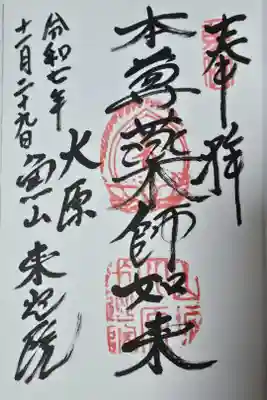 奉拝
本尊薬師如来
令和七年
十一月二十九日
大原
魚山 来迎院